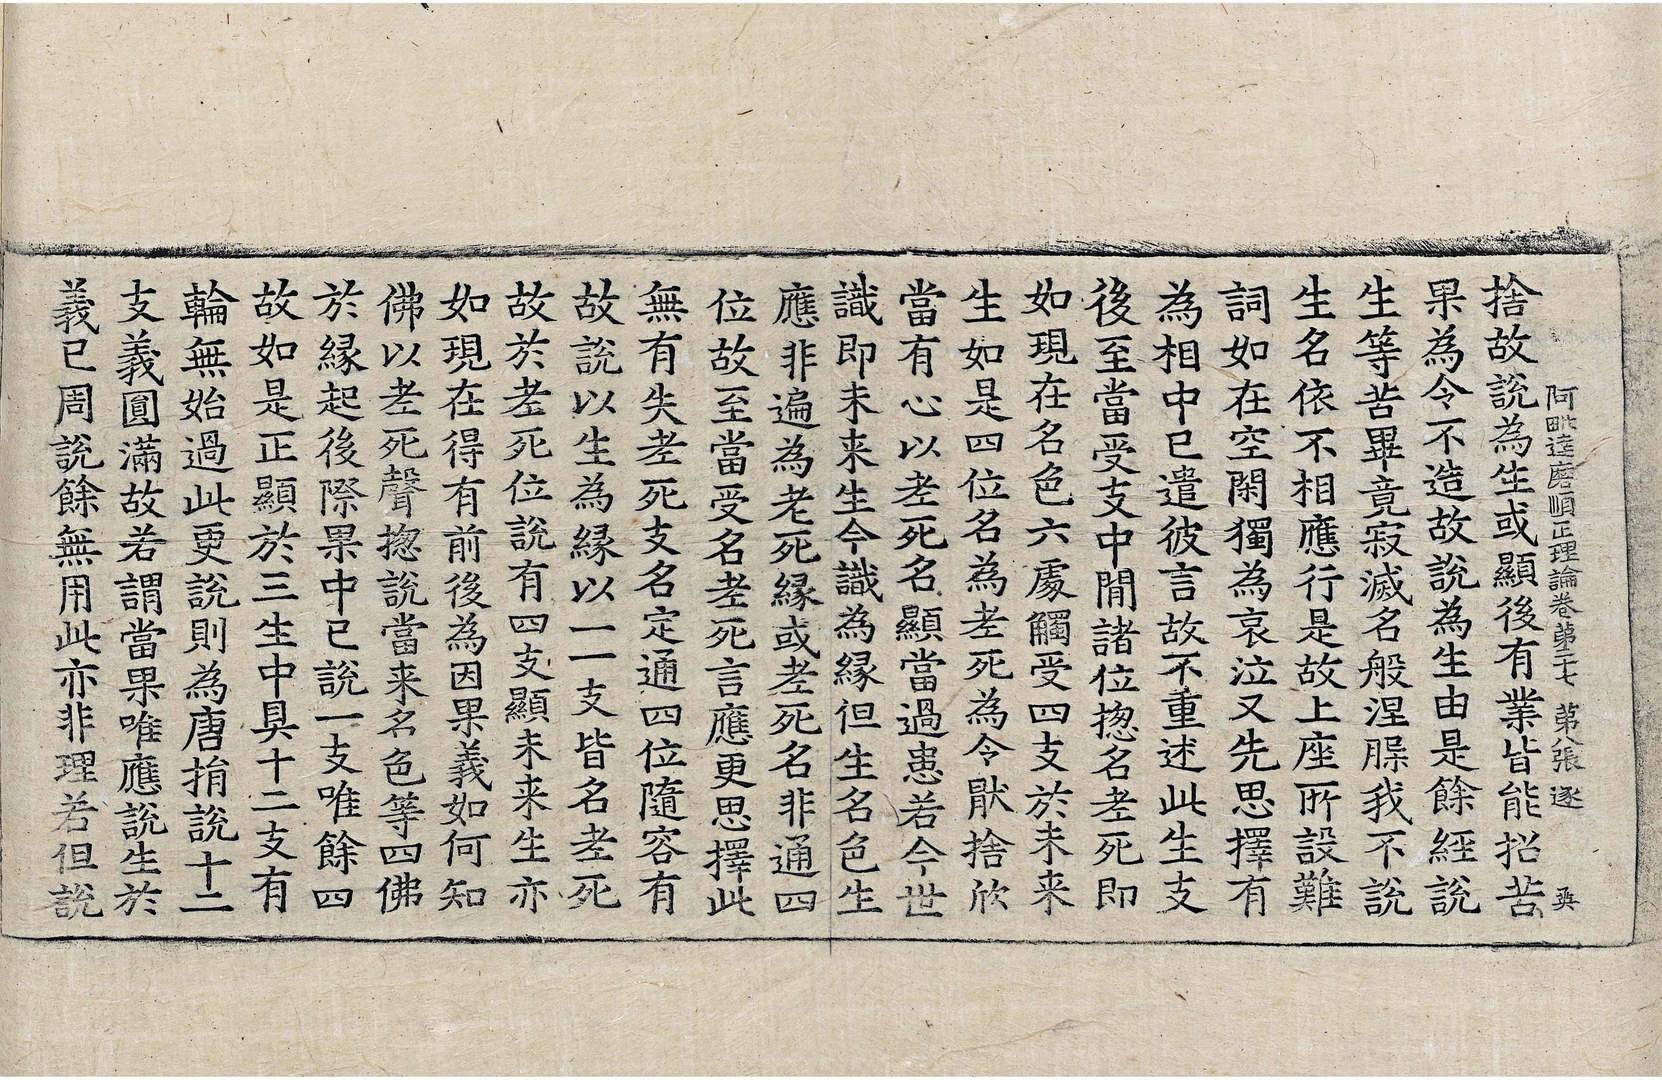 阿毗達磨順正理論卷第二十七 第八張 逐
捨故說為生或顯後有業皆能招苦
果為令不造故說為生由是餘經說
生等苦畢竟寂滅名般涅腺我不說
生名依不相應行是故上座所設難
詞如在空閑獨為哀泣又先思擇有
為相中已遣彼言故不重述此生支
後至當受支中閒諸位揔名老死即
如現在名色六處觸受四支於未来
生如是四位名為老死為令猒捨欣
當有心以老死名顯當過患若今世
識即未来生今識為縁但生名色生
應非遍為老死縁或老死名非通四
位故至當受名老死言應更思擇此
無有失老死支名定通四位隨容有
故說以生為縁以一一支皆名老死
故於老死位說有四支顯未来生亦
如現在得有前後為因果義如何知
佛以老死聲揔說當来名色等四佛
於縁起後際果中已說一支唯餘四
故如是正顯於三生中具十二支有
輪無始過此更說則為唐捐說十二
支義圓滿故若謂當果唯應說生於
義已周說餘無用此亦非理若但說